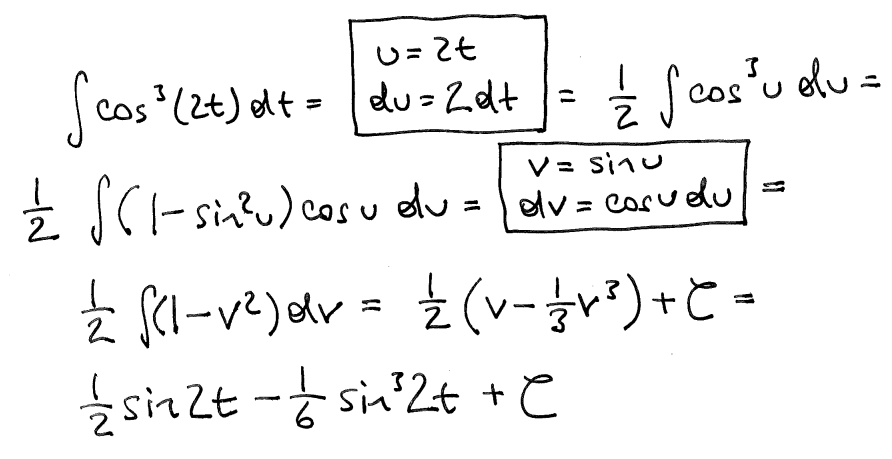 ∫ cos³(2t) dt = [u = 2t, du = 2dt] = 1/2 ∫ cos³u du =
1/2 ∫(1 - sin²u) cos u du = [v = sin u, dv = cos u du] =
1/2 ∫(1 - v²) dv = 1/2 (v - 1/3 v³) + C =
1/2 sin 2t - 1/6 sin³ 2t + C